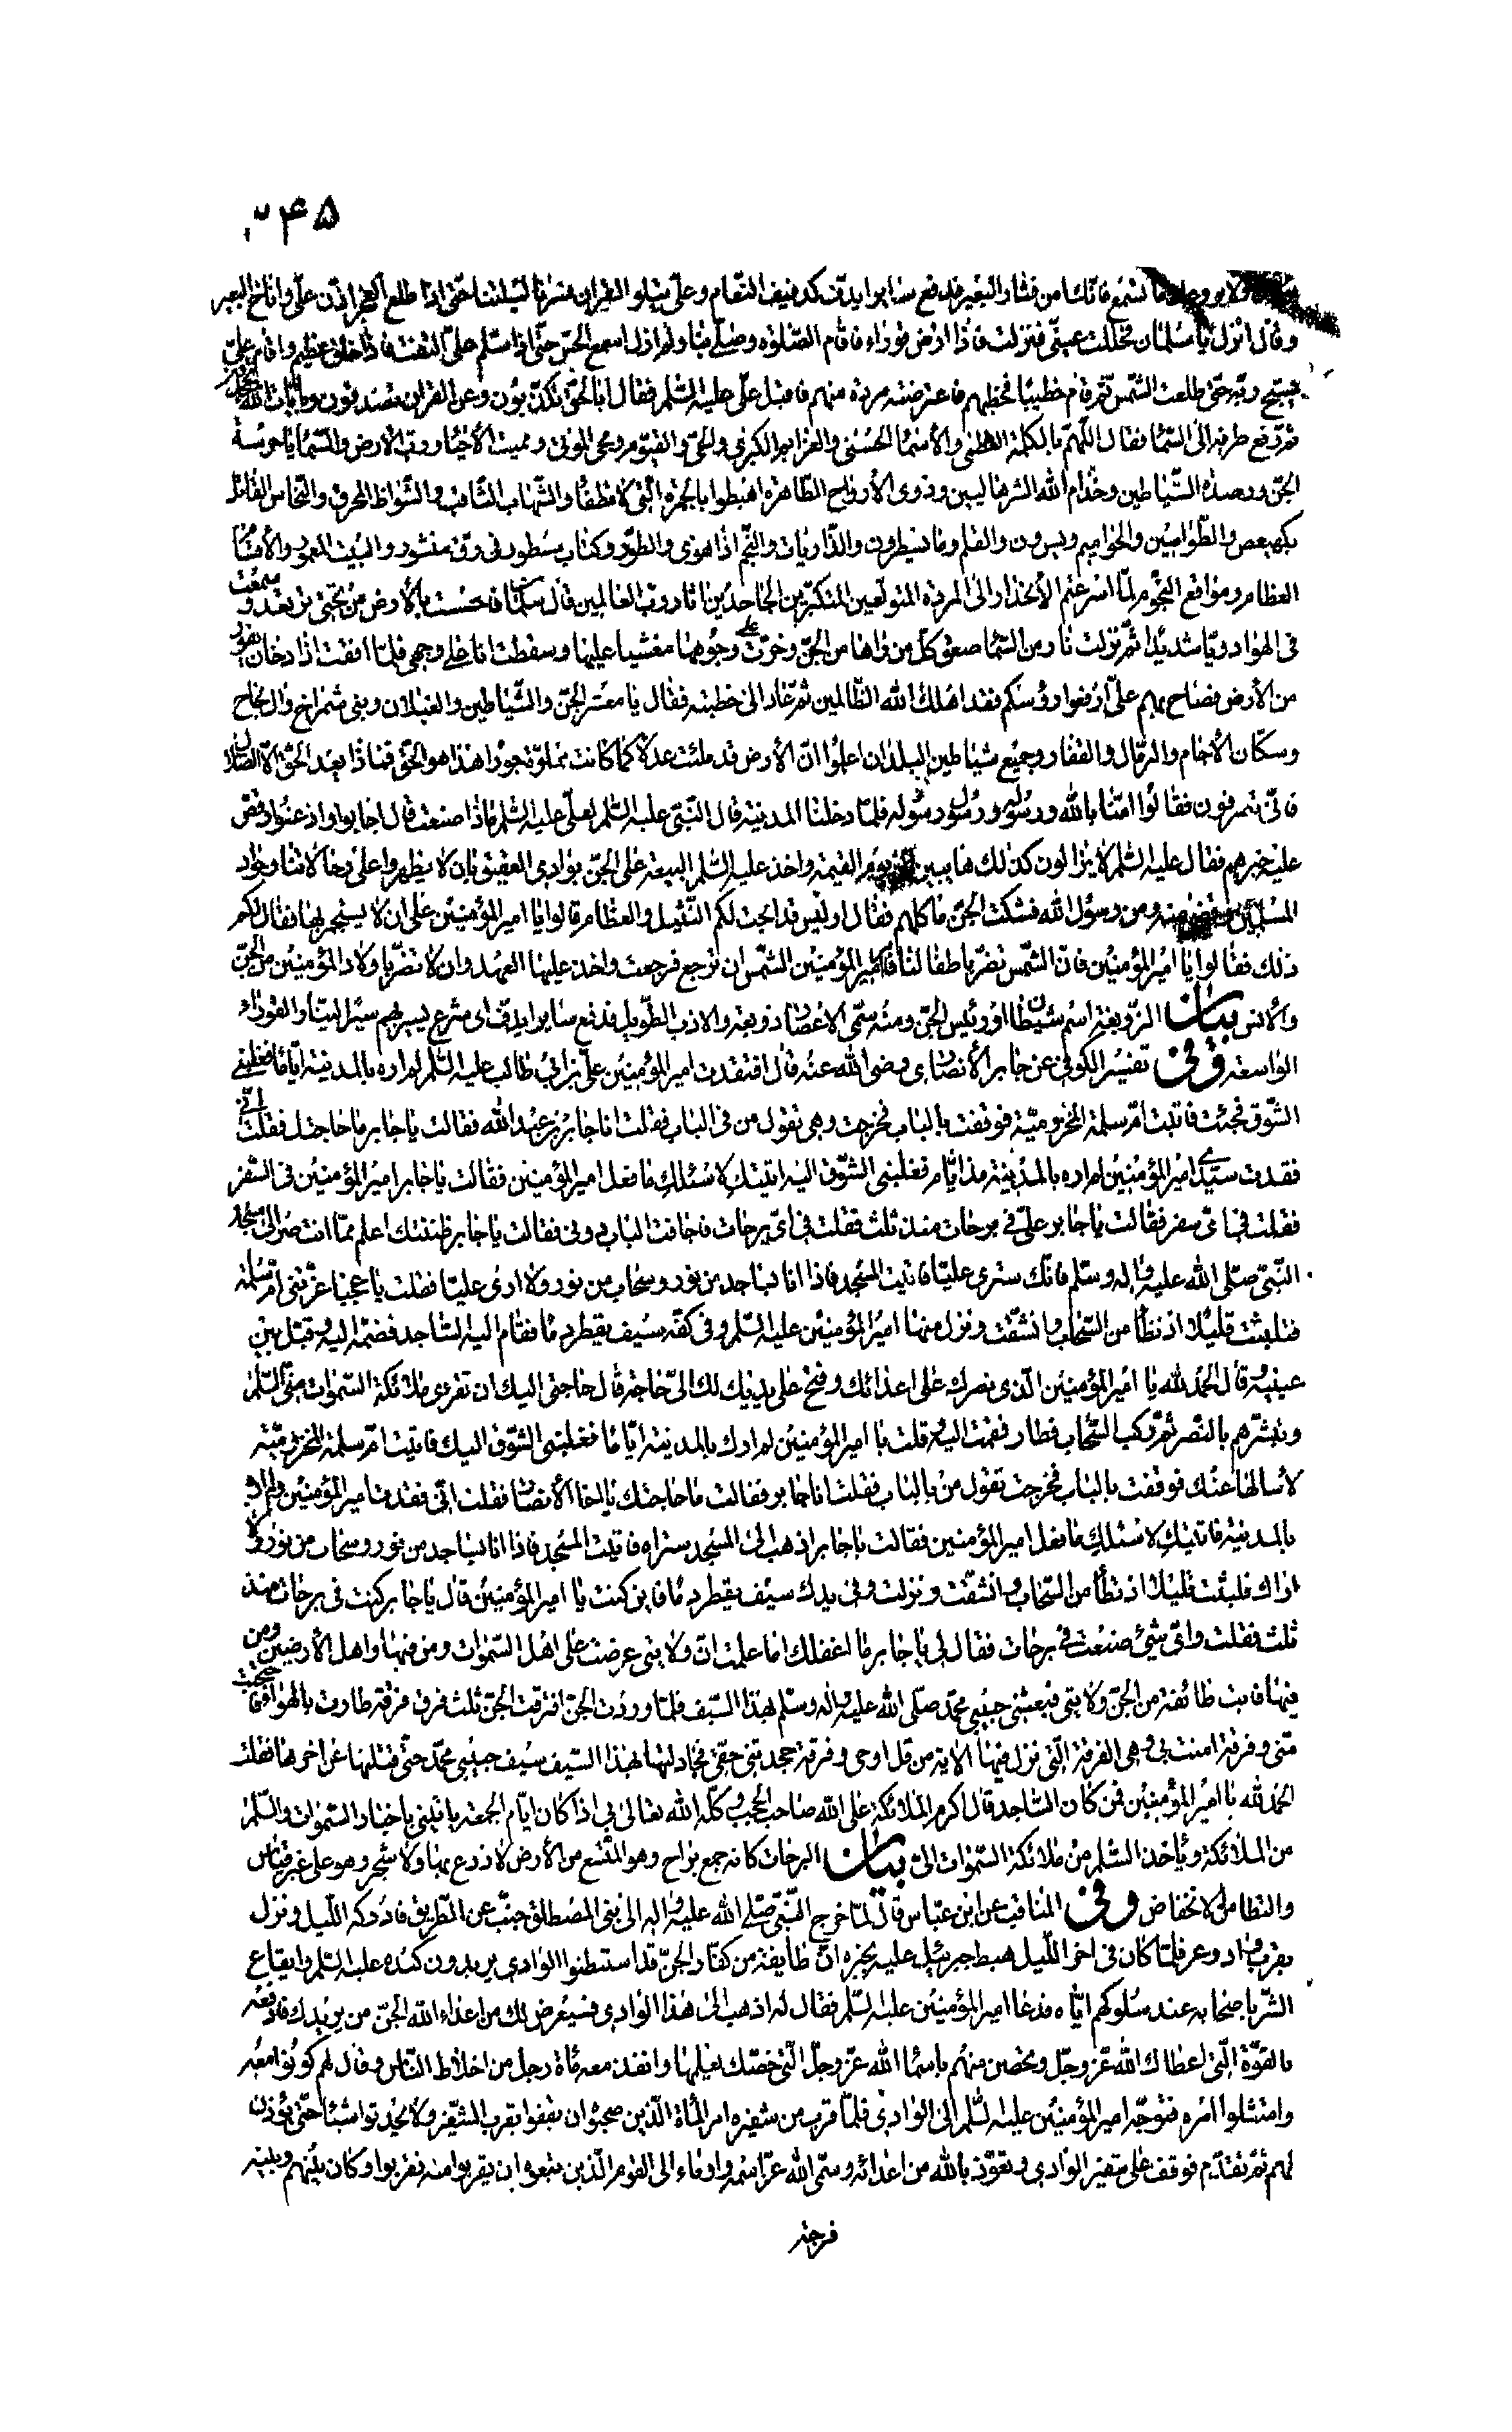 ۳۴۵
ما تسمع فانك امن فثار البعير فدفع سايرا يدف كدفيف النعام وعلى يتلو القران فسرنا ليلتنا حتى اذا طلع الفجر اذن على واناخ البعير
وقال انزل يا سلمان فحللت عينى فنزلت فاذا ارض قوراء فاقام الصلوة وصلى بنا ولم ازل اسمع الحس حتى اذا سلم على التفت فاذا خلق عظيم واقام على
يسبح ربه حتى طلعت الشمس ثم قام خطيبا فخطبهم فاعترضته مردة منهم فاقبل على عليه السلم فقال ابالحق تكذبون وعن القران تصدفون وبايات الله تجحدون
ثم رفع طرفه الى السماء فقال اللهم بالكلمة العظمى والأسماء الحسنى والعزايم الكبرى والحى القيوم ومحيى الموتى ومميت الأحياء ورب الارض والسماء يا حرسة
الجن ورصدة الشياطين وخدام الله الشرهاليين وذوى الأرواح الطاهرة اهبطوا بالجمرة التى لا تطفأ والشهاب الثاقب والشواظ المحرق والنحاس القاتل
بكهيعص والطواسين والحواميم ويس ون والقلم وما يسطرون والذاريات والنجم اذا هوى والطور وكتاب مسطور فى رق منشور والبيت المعمور والأقسام
العظام ومواقع النجوم لما اسرعتم الأنحدار الى المردة المتولعين المتكبرين الجاحدين اثار رب العالمين قال سلمان فاحسست بالأرض من تحتى ترتعد وسمعت
فى الهواء دويا شديدا ثم نزلت نار من السماء صعق كل من راها من الجن وخرت على وجوهها مغشيا عليها وسقطت انا على وجهى فلما افقت اذا دخان يفور
من الأرض فصاح بهم على ارفعوا رؤسكم فقد اهلك الله الظالمين ثم عاد الى خطبته فقال يا معشر الجن والشياطين والغيلان وبنى شمراخ وال نجاح
وسكان الأجام والرمال والقفار وجميع شياطين البلدان اعلموا ان الأرض قد ملئت عدلا كما كانت مملوة جورا هذا هو الحق فماذا بعد الحق الا الضلال
فانى تصرفون فقالوا امنا بالله ورسوله ورسول رسوله فلما دخلنا المدينة قال النبى عليه السلم لعلى عليه السلم ماذا صنعت قال اجابوا واذعنوا وقص
عليه خبرهم فقال عليه السلم لا يزالون كذلك هايبين الى يوم القيمة واخذ عليه السلم البيعة على الجن بوادى العقيق بان لا يظهروا على رحالاتنا وجواد
المسلمين منه ومن رسول الله فشكت الجن ماكلهم فقال اوليس قد ابحت لكم النثيل والعظام قالوا يا امير المؤمنين على ان لا يستجمر بها فقال لكم
ذلك فقالوا يا امير المؤمنين فان الشمس تضر باطفالنا فامر امير المؤمنين الشمس ان ترجع فرجعت واخذ عليها العهد وان لا تضر باولاد المؤمنين من الجن
والأنس بيان الزوبعة اسم شيطان او رئيس الجن ومنه سمى الأعصار زوبعة والازب الطويل فدفع سايرا يدف اى شرع يسير بهم سيرا لينا والقوراء
الواسعة وفى تفسير الكوفى عن جابر الأنصارى رضى الله عنه قال افتقدت امير المؤمنين على بن ابى طالب عليه السلم لم اره بالمدينة اياما فغلبنى
الشوق فجئت فاتيت ام سلمة المخزومية فوقفت بالباب فخرجت وهى تقول من فى الباب فقلت انا جابر بن عبد الله فقالت يا جابر ما حاجتك فقلت انى
فقدت سيدى امير المؤمنين لم اره بالمدينة مذ ايام فغلبنى الشوق اليه اتيتك لأسئلك ما فعل امير المؤمنين فقالت يا جابر امير المؤمنين فى السفر
فقلت فى اى سفر فقالت يا جابر على فى برحات منذ ثلث فقلت فى اى برحات فاجافت الباب دونى فقالت يا جابر ظننتك اعلم مما انت صر الى مسجد
النبى صلى الله عليه واله وسلم فانك سترى عليا فاتيت المسجد فاذا انا بساجد من نور وسحاب من نور ولا ارى عليا فقلت يا عجبا غرتنى ام سلمة
فتلبثت قليلا اذ تطأمن السحاب وانشقت ونزل منها امير المؤمنين عليه السلم وفى كفه سيف يقطر دما فقام اليه الساجد فضمه اليه وقبل بين
عينيه وقال الحمد لله يا امير المؤمنين الذى نصرك على اعدائك وفتح على يديك لك الى حاجة قال حاجتى اليك ان تقرئ ملائكة السموات منى السلم
وتبشرهم بالنصر ثم ركب السحاب فطار فقمت اليه وقلت يا امير المؤمنين لم ارك بالمدينة اياما فغلبنى الشوق اليك فاتيت ام سلمة المخزومية
لأسالها عنك فوقفت بالباب فخرجت تقول من بالباب فقلت انا جابر فقالت ما حاجتك يا اخا الأنصار فقلت انى فقدت امير المؤمنين ولم اره
بالمدينة فاتيتك لاسئلك ما فعل امير المؤمنين فقالت يا جابر اذهب الى المسجد ستراه فاتيت المسجد فاذا انا بساجد من نور وسحاب من نور ولا
اراك فلبثت قليلا اذ تطأمن السحاب وانشقت ونزلت وفى يدك سيف يقطر دما فاين كنت يا امير المؤمنين قال يا جابر كنت فى برحات منذ
ثلث فقلت واى شئ صنعت فى برحات فقال لى يا جابر ما اغفلك اما علمت ان ولايتى عرضت على اهل السموات ومن فيها واهل الأرضين ومن
فيها فابت طائفة من الجن ولايتى فبعثنى حبيبى محمد صلى الله عليه واله وسلم بهذا السيف فلما وردت الجن افترقت الجن ثلث فرق فرقة طارت بالهواء فاحتجبت
منى وفرقة امنت بى وهى الفرقة التى نزل فيها الاية من قل اوحى وفرقة جحدتنى حقى فجادلتها بهذا السيف سيف حبيبى محمد حتى قتلتها عن اخرها فقلت
الحمد لله يا امير المؤمنين فمن كان الساجد قال اكرم الملائكة على الله صاحب الحجب وكله الله تعالى بى اذا كان ايام الجمعة ياتينى باخبار السموات والسلم
من الملائكة وياخذ السلم من ملائكة السموات الى بيان البرحات كانه جمع براح وهو المتسع من الأرض لا زرع بها ولا شجر وهو على غير قياس
والتطامن الانخفاض وفى المناقب عن ابن عباس قال لما خرج النبى صلى الله عليه واله الى بنى المصطلق جنب عن الطريق فادركه الليل ونزل
بقرب واد وعر فلما كان فى اخر الليل هبط جبرئيل عليه يخبره ان طايفة من كفار الجن قد استبطنوا الوادى يريدون كيده عليه السلم وايقاع
الشر باصحابه عند سلوكهم اياه فدعا امير المؤمنين عليه السلم فقال له اذهب الى هذا الوادى فسيعرض لك من اعداء الله الجن من يريدك فادفعه
بالقوة التى اعطاك الله عز وجل وتحصن منهم باسماء الله عز وجل التى خصك بعلمها وانفذ معه مائة رجل من اخلاط الناس وقال لهم كونوا معه
وامتثلوا امره فتوجه امير المؤمنين عليه السلم الى الوادى فلما قرب من شفيره امر المأة الذين صحبوه ان يقفوا بقرب الشفير ولا يحدثوا شيئا حتى يؤذن
لهم ثم تقدم فوقف على شفير الوادى وتعوذ بالله من اعدائه وسمى الله عز اسمه واومأ الى القوم الذين تبعوه ان يقربوا منه فقربوا وكان بينهم وبينه
فرجة